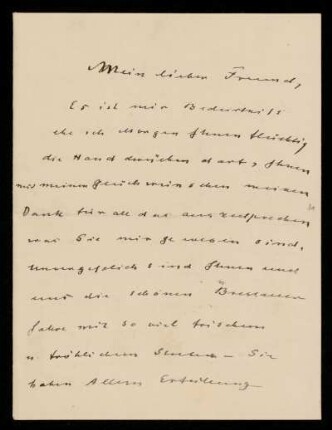 Mein lieber Freund,
Es ist mir Bedürfniss
ehe ich Morgen Ihnen flüchtig
die Hand drücken darf, Ihnen
mit meinen Glückwünschen meinen
Dank für all das auszusprechen
was Sie mir gewesen sind,
unvergesslich sind Ihnen und
uns die schönen Breslauer
Jahre mit so viel frischem
u. fröhlichem – Sie
haben Allem Erfüllung